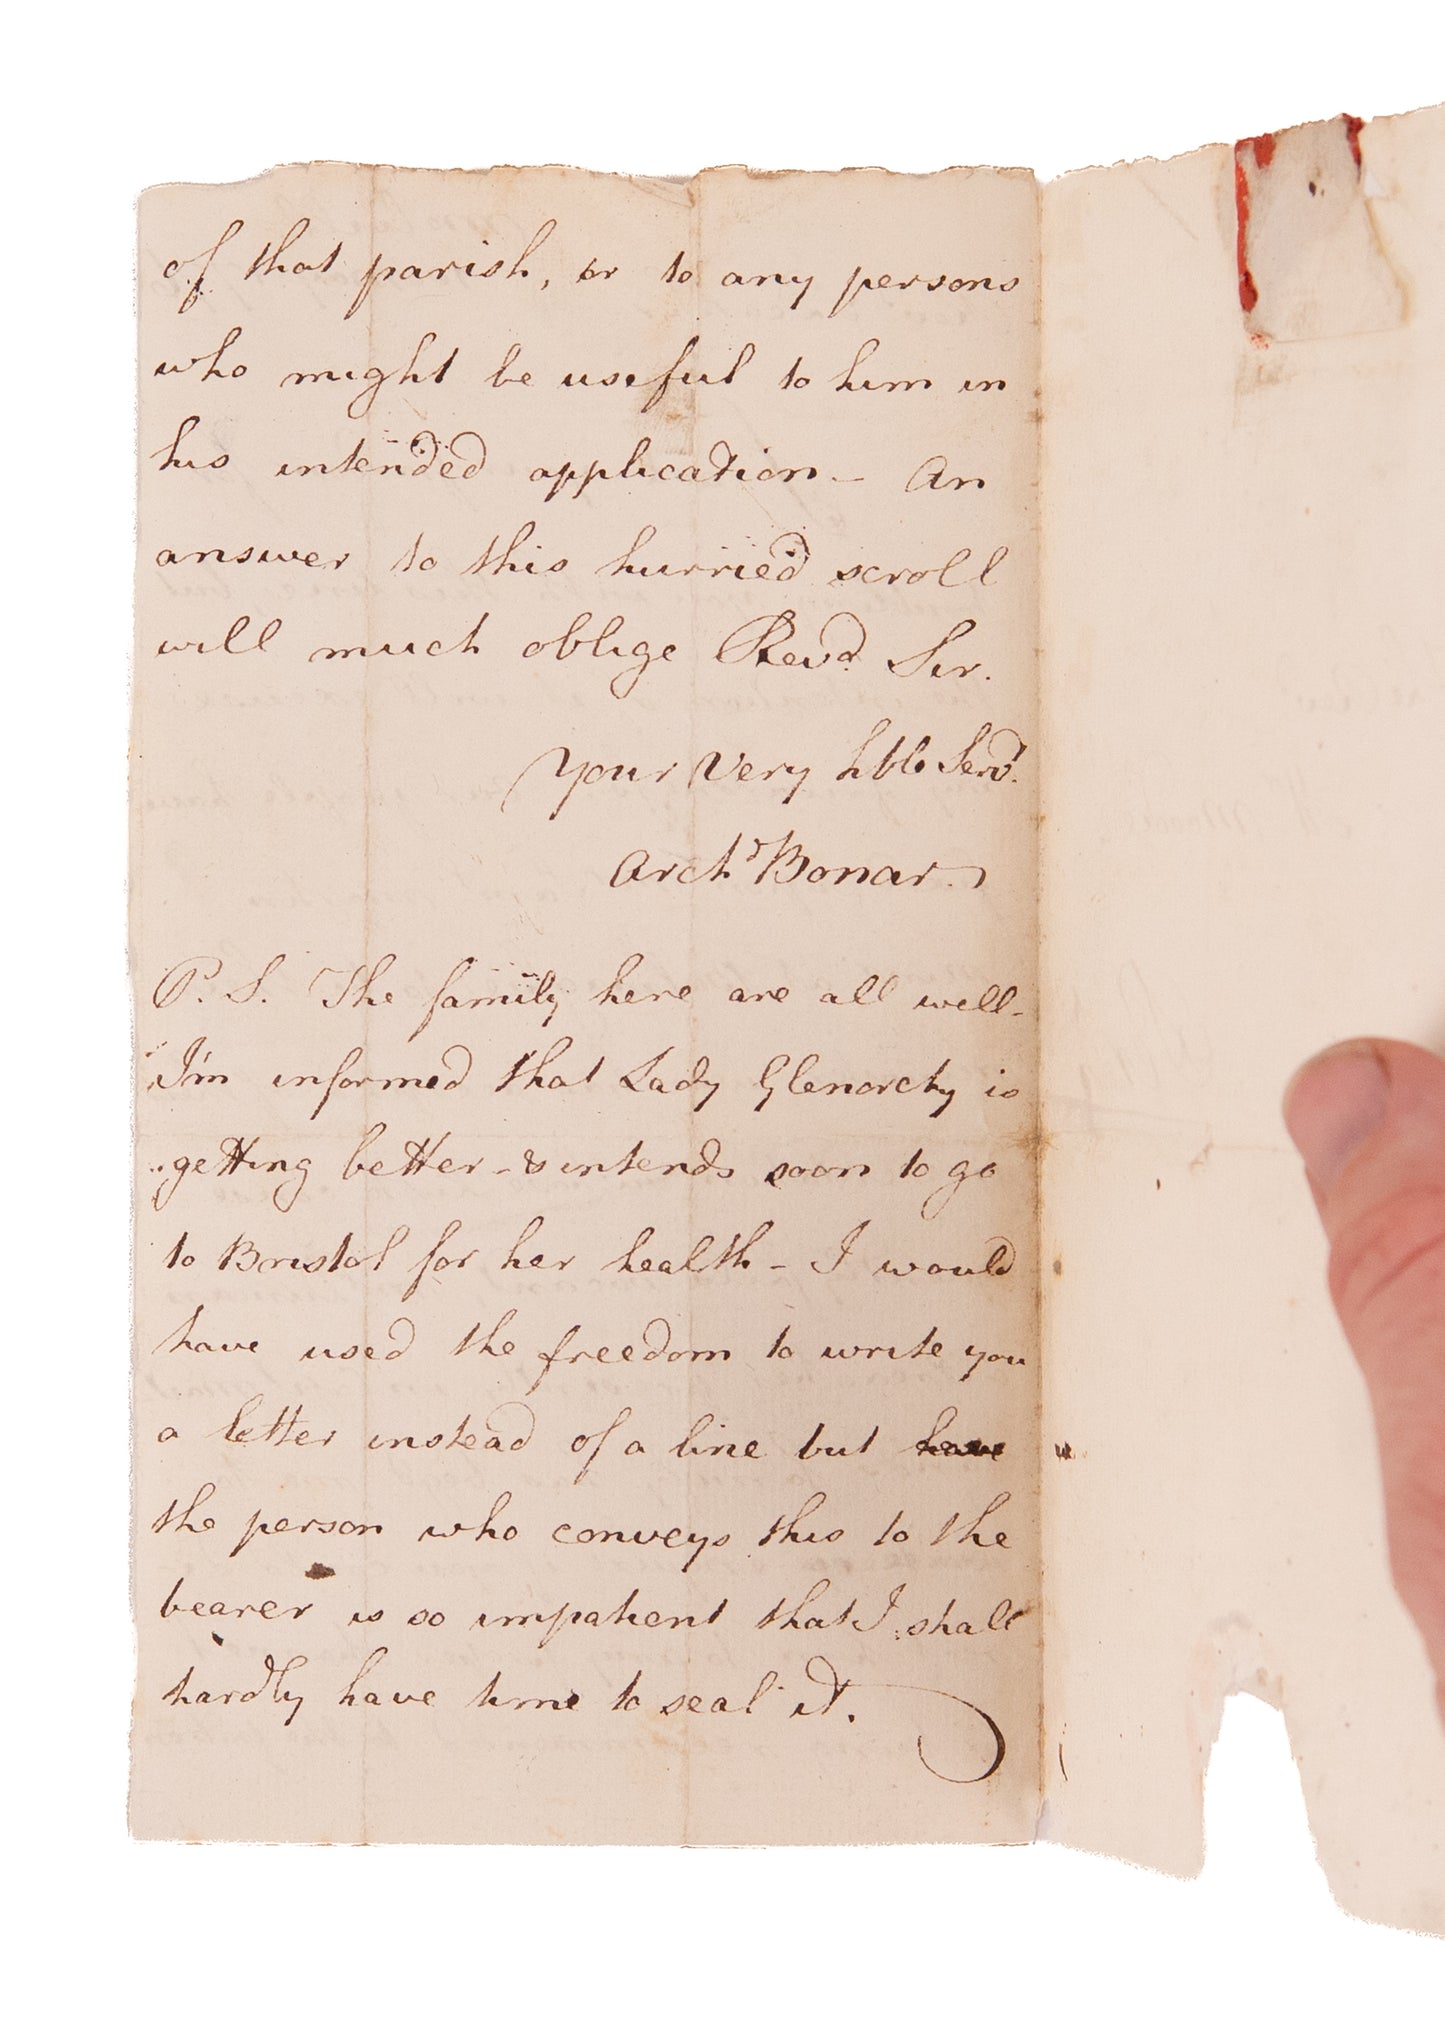 of that parish, or to any persons
who might be useful to him in
his intended application - An
answer to this hurried scroll
will much oblige Revd. Sir.
Your very hble Servt.
Archd Bonar.
P. S. The family here are all well-
I'm informed that Lady Glenorchy is
getting better - & intends soon to go
to Bristol for her health - I would
have used the freedom to write you
a letter instead of a line but have
the person who conveys this to the
bearer is so impatient that I shall
hardly have time to seal it.